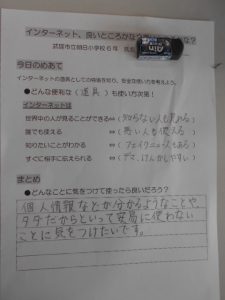 インターネット、良いところかな
武雄市立朝日小学校6年
今日のめあて
インターネットの道具としての特徴を知り、安全な使い方を考えよう。
●どんな便利な(道具)も使い方次第!
インターネットは
世界中の人が見ることができる⇔(知らない人も見れる)
誰でも使える ⇔(悪い人も使える)
知りたいことがわかる ⇔(フェイクニュースもある)
すぐに相手に伝えられる ⇔(デマ、けんかしやすい)
まとめ
●どんなことに気をつけて使ったら良いだろう?
個人情報などが分かるようなことや、
タダだからといって安易に使わない
ことに気をつけたいです。